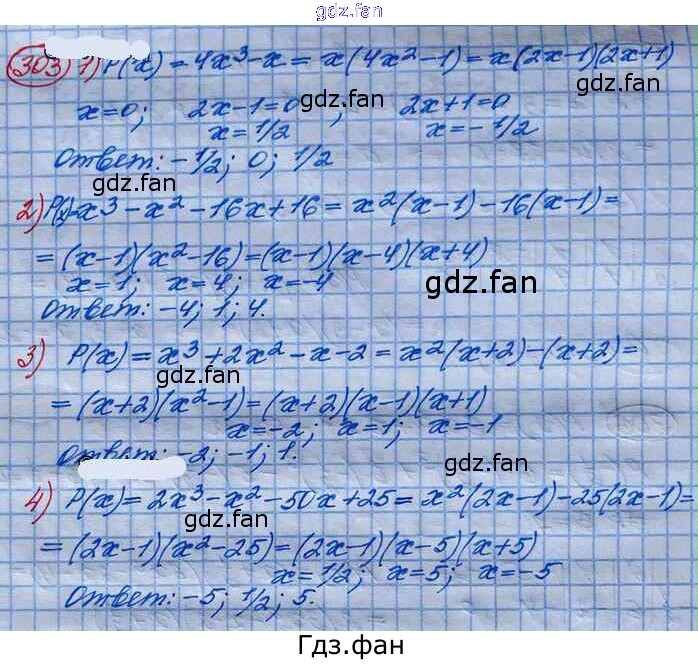 gdz.fan
303) 1) P(x) = 4x³-x = x(4x²-1) = x(2x-1)(2x+1)
x=0; 2x-1=0; 2x+1=0
gdz.fan gdz.fan
x=1/2 x=-1/2
Ответ: -1/2; 0; 1/2
gdz.fan
2) P(x)=x³-x²-16x+16 = x²(x-1)-16(x-1)=
=(x-1)(x²-16)=(x-1)(x-4)(x+4)
x=1; x=4; x=-4
gdz.fan
Ответ: -4; 1; 4.
3) P(x)=x³+2x²-x-2=x²(x+2)-(x+2)=
gdz.fan
=(x+2)(x²-1)=(x+2)(x-1)(x+1)
x=-2; x=1; x=-1
Ответ: -2; -1; 1.
gdz.fan
4) P(x)=2x³-x²-50x+25=x²(2x-1)-25(2x-1)=
gdz.fan gdz.fan
=(2x-1)(x²-25)=(2x-1)(x-5)(x+5)
x=1/2; x=5; x=-5
Ответ: -5; 1/2; 5.
gdz.fan
Гдз.фан